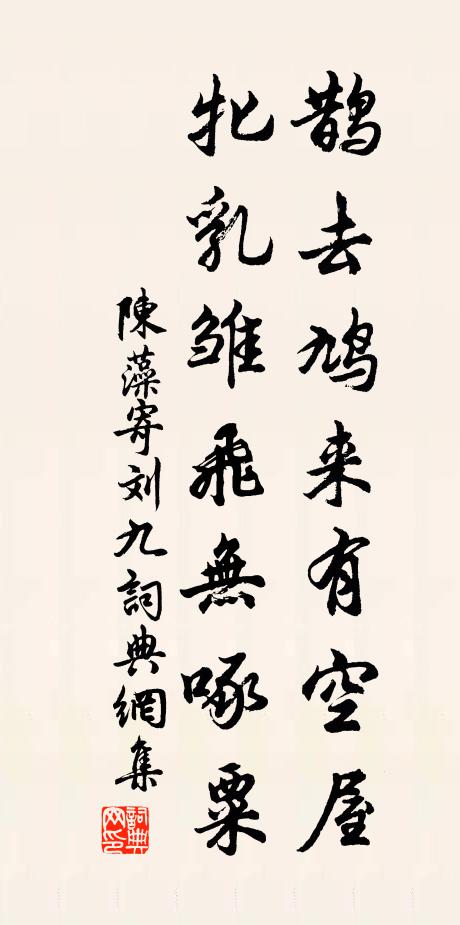 鵲去鳩来有空屋
牝乳雏飛無啄粟
陳藻寄刘九詞典網集
詞典网印